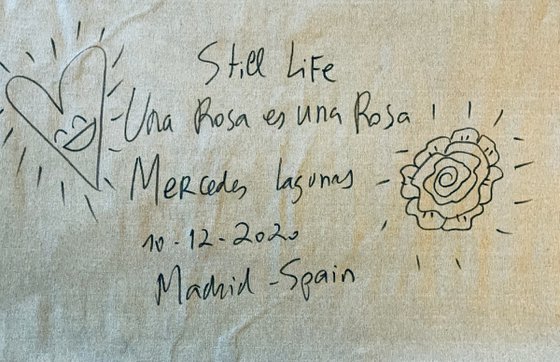 Still Life
Una Rosa es una Rosa
Mercedes Lagunas
10-12-2020
Madrid - Spain